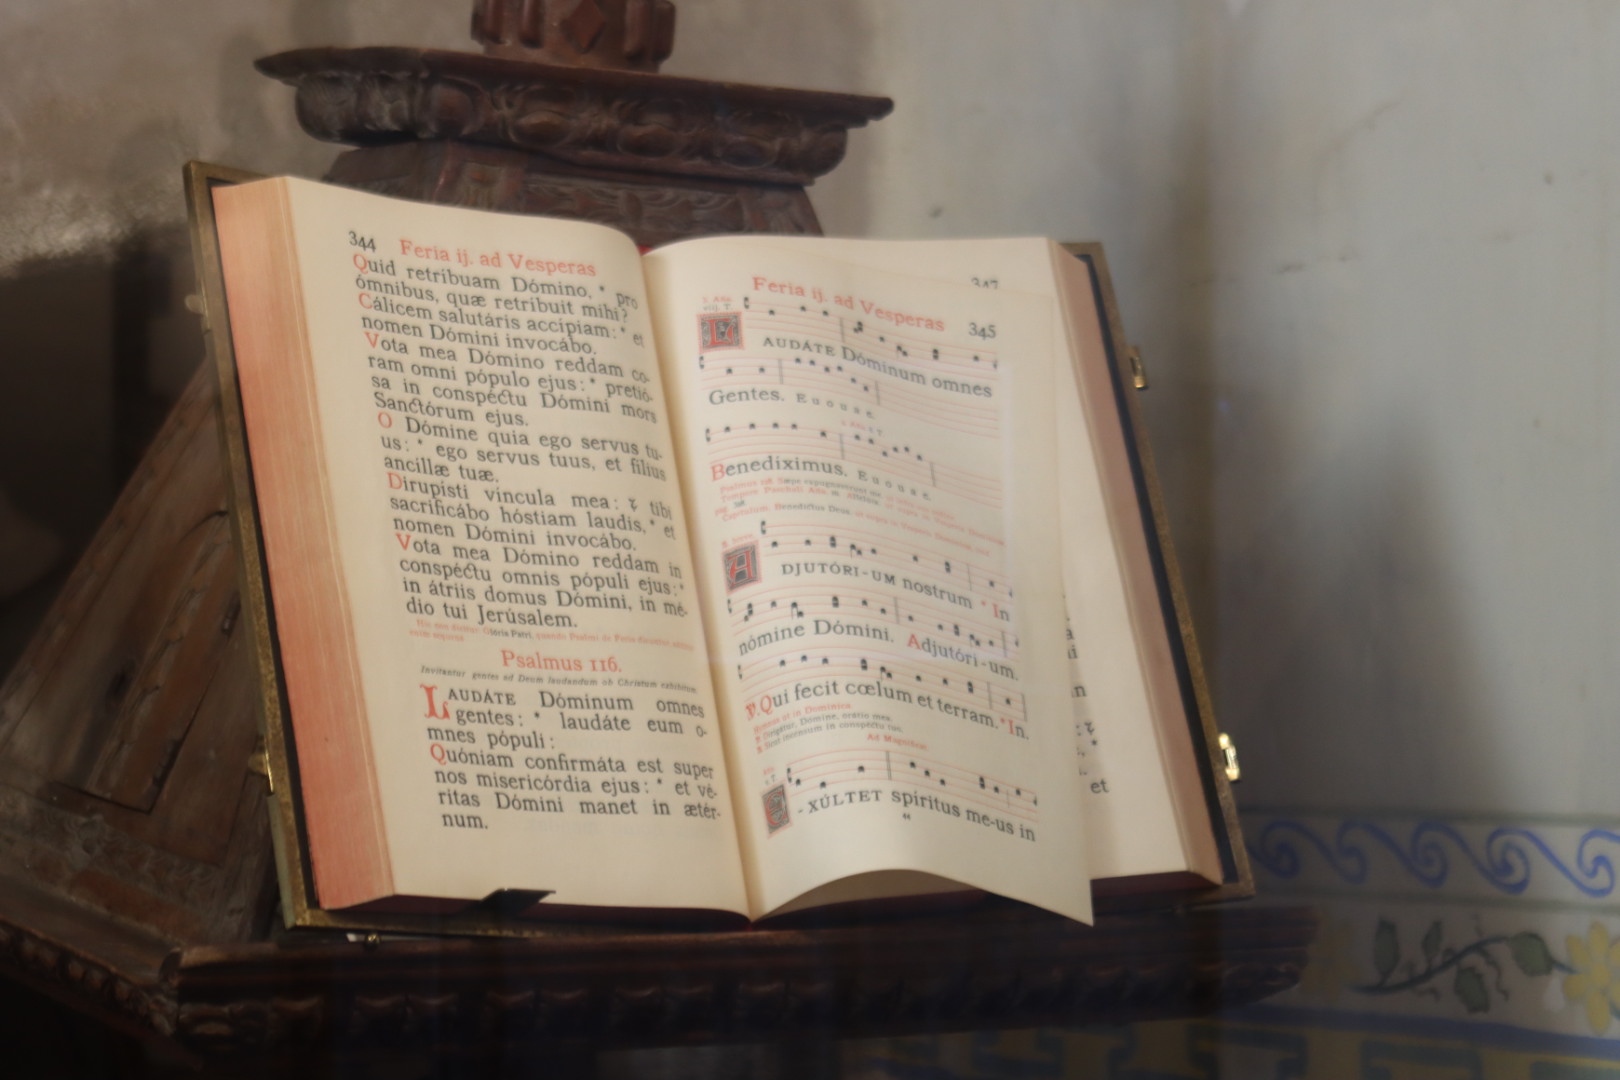 344 Feria ij. ad Vesperas
Quid retríbuam Dómino, * pro
ómnibus, quæ retríbuit mihi?
Cálicem salutáris accípiam: * et
nomen Dómini invocábo.
Vota mea Dómino reddam co-
ram omni pópulo ejus: * pretió-
sa in conspéctu Dómini mors
Sanctórum ejus.
O Dómine quia ego servus tu-
us: * ego servus tuus, et fílius
ancíllæ tuæ.
Dirupísti víncula mea: ⁊ tibi
sacrificábo hóstiam laudis, * et
nomen Dómini invocábo.
Vota mea Dómino reddam in
conspéctu omnis pópuli ejus: *
in átriis domus Dómini, in mé-
dio tui Jerúsalem.
Glória Patri,
Psalmus 116.
Invitantur gentes ad Deum laudandum ob Christum exhibitum.
LAUDÁTE Dóminum omnes
gentes: * laudáte eum o-
mnes pópuli:
Quóniam confirmáta est super
nos misericórdia ejus: * et vé-
ritas Dómini manet in ætér-
num.
347
Feria ij. ad Vesperas 345
LAUDÁTE Dóminum omnes
Gentes. E u o u a e.
Benedíximus. E u o u a e.
ADJUTÓRI-UM nostrum * In
nómine Dómini. Adjutóri-um.
℣. Qui fecit cœlum et terram. * In.
Ad Magnificat
E-XÚLTET spíritus me-us in
et